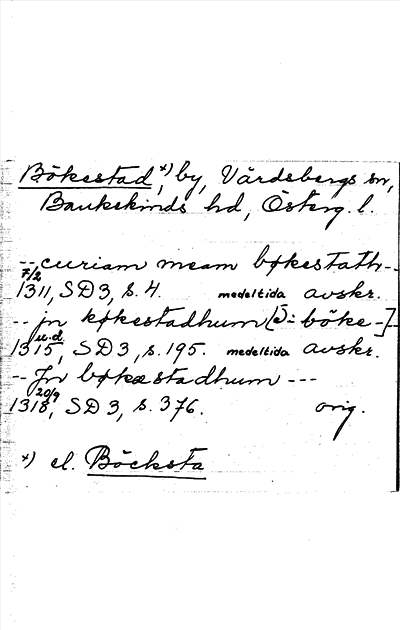 Bökestad, x) by, Vårdsbergs sn,
Bankekinds hd, Österg. l.
-- curiam meam bøkestath --
7/2
1311, SD 3, s. 4. medeltida avskr.
-- jn køkestadhum [ɔ: böke-]
u.d.
1315, SD 3, s. 195. medeltida avskr.
-- Jn bøkæstadhum ---
20/9
1318, SD 3, s. 376. orig.
x) el. Böcksta